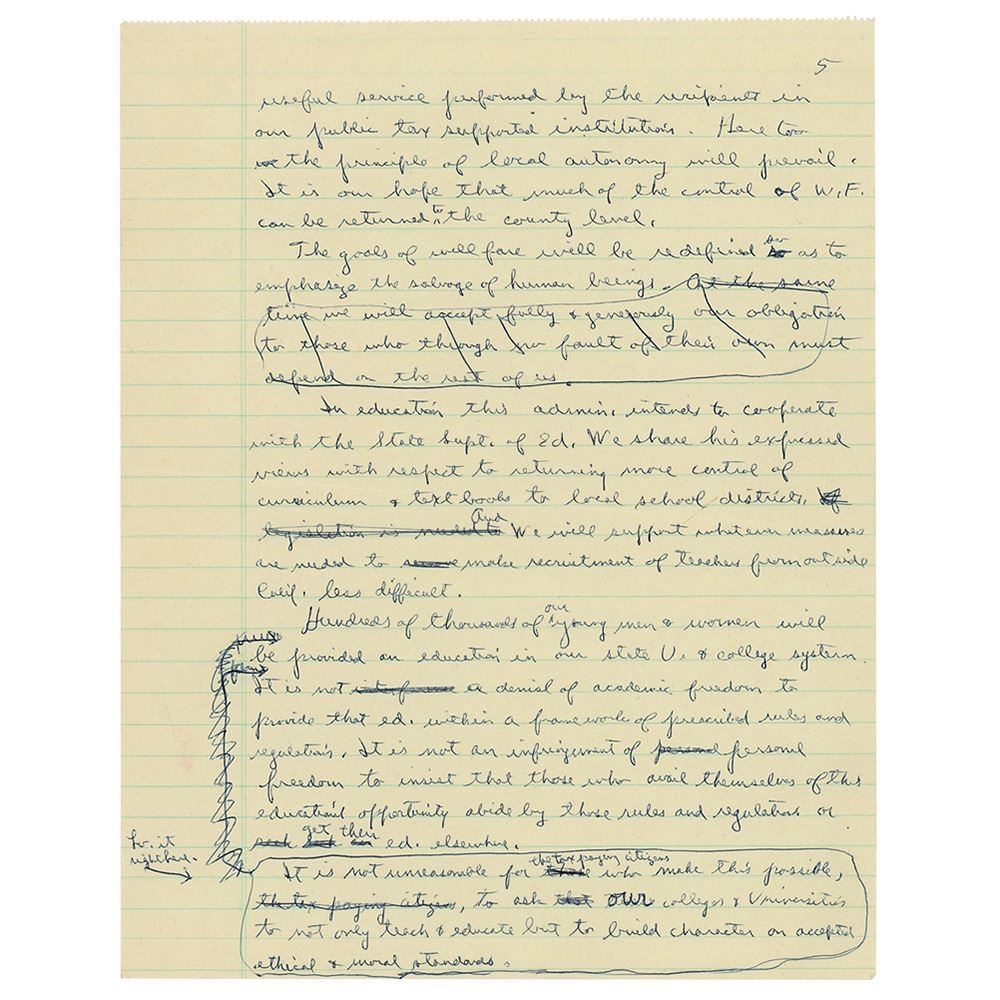 5
useful service performed by the recipients in
our public tax supported institutions. Here too
the principle of local autonomy will prevail.
It is our hope that much of the control of W.F.
can be returned to the county level.
The goals of willfare will be redefined so as to
emphasize the salvage of human beings. At the same
time we will accept fully & generously our obligation
to those who through no fault of their own must
depend on the rest of us.
In education this admin. intends to cooperate
with the State Supt. of Ed. We share his expressed
views with respect to returning more control of
curriculum & text books to local school districts. If
legislation is needed to And We will support whatever measures
are needed to remove make recruitment of teachers from outside
Calif. less difficult.
Hundreds of thousands of our young men & women will
be provided an education in our state U. & college system.
It is not interference a denial of academic freedom to
provide that ed. within a framework of prescribed rules and
regulations. It is not an infringement of personal personal
freedom to insist that those who avail themselves of this
educational opportunity abide by those rules and regulations or
seek get their ed. elsewhere.
It is not unreasonable for those the tax paying citizens who make this possible,
the tax paying citizens, to ask that our colleges & Universities
to not only teach & educate but to build character on accepted
ethical & moral standards.
right here.